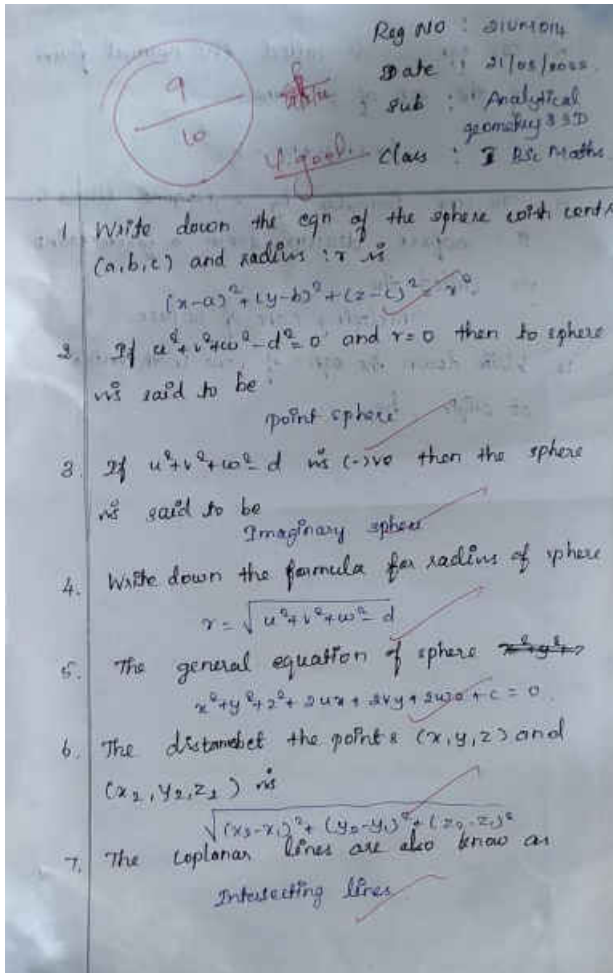 Reg NO : 21UM014
Date : 21/05/2022
9
10
Sub : Analytical
geometry 3D
V. good.
Class : I BSc Maths
1. Write down the eqn of the sphere with centre
(a,b,c) and radius 'r' is
(x-a)²+(y-b)²+(z-c)²=r²
2. If u²+v²+w²-d²=0 and r=0 then to sphere
is said to be
point sphere
3. If u²+v²+w²-d is (-)ve then the sphere
is said to be
Imaginary sphere
4. Write down the formula for radius of sphere
r=√u²+v²+w²-d
5. The general equation of sphere
x²+y²+z²+2ux+2vy+2wz+c=0.
6. The distancebet the points (x,y,z) and
(x₂,y₂,z₂) is
√(x₂-x₁)²+(y₂-y₁)²+(z₂-z₁)²
7. The coplanar lines are also know as
Intersecting lines